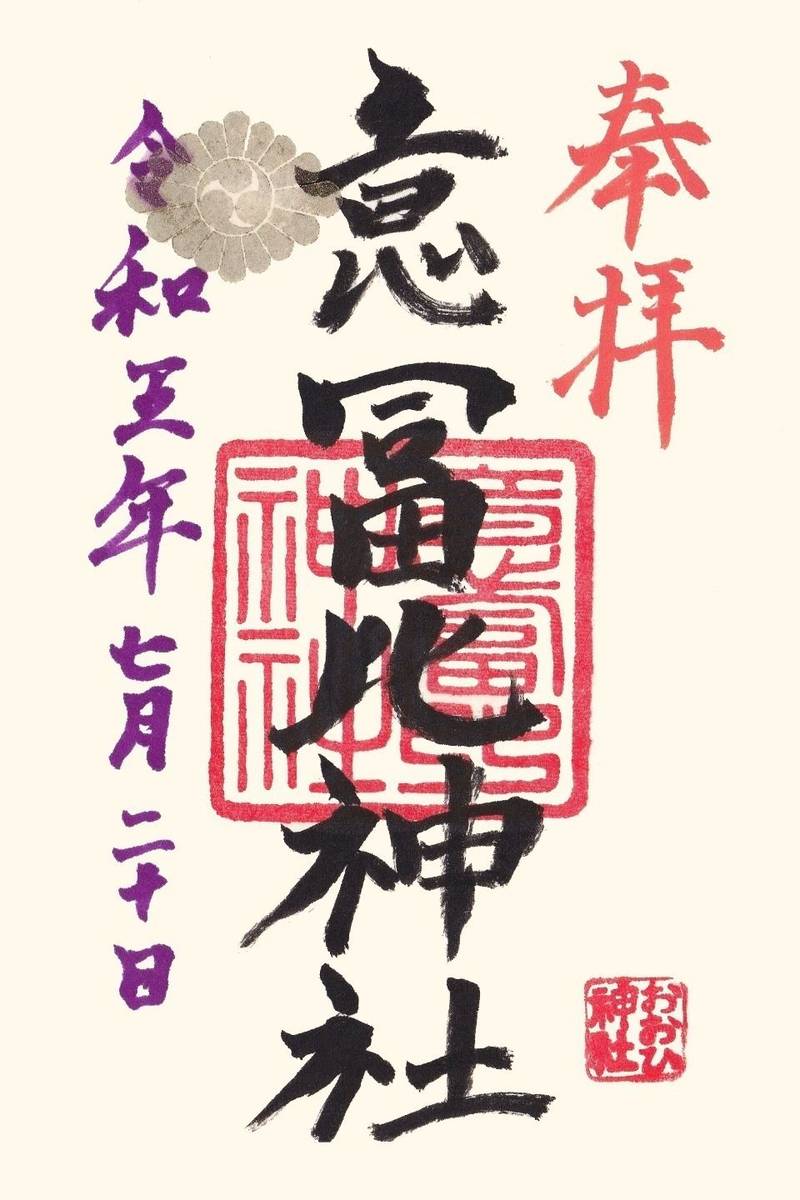 奉拝
意冨比神社
令和五年七月二十日
意富比
神社
おおひ
神社